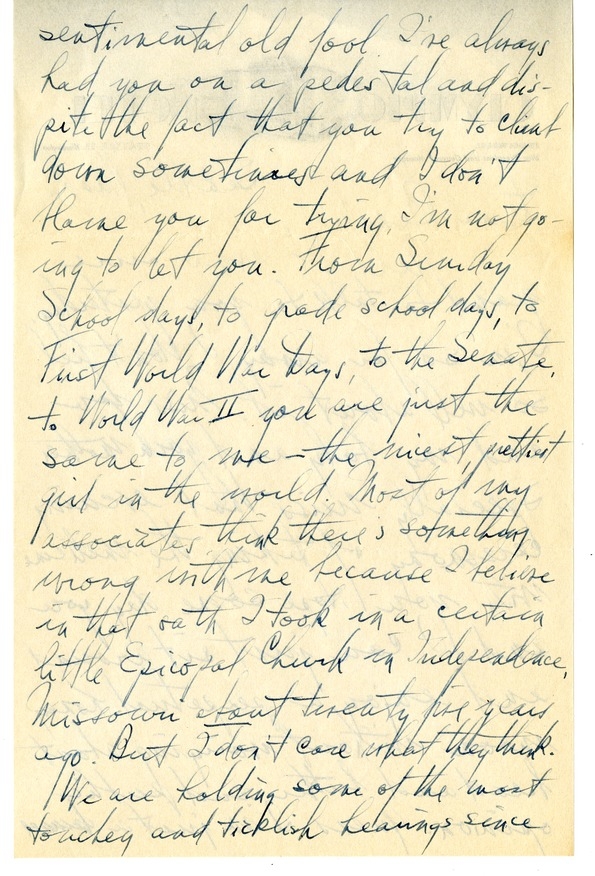 sentimental old fool. I've always
had you on a pedestal and dis-
pite the fact that you try to climb
down sometimes and I don't
blame you for trying, I'm not go-
ing to let you. From Sunday
School days, to grade school days, to
First World War Days, to the Senate,
to World War II you are just the
same to me – the nicest, prettiest
girl in the world. Most of my
associates think there's something
wrong with me because I believe
in that oath I took in a certain
little Episcopal Church in Independence,
Missouri about twenty five years
ago. But I don't care what they think.
We are holding some of the most
touchey and ticklish hearings since